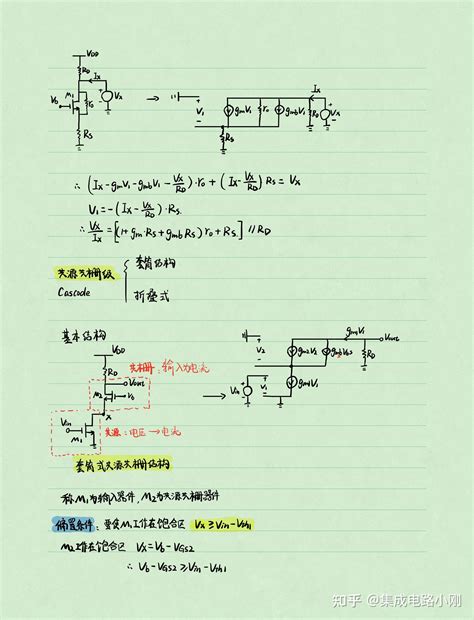 VDD
RD
Ix
M1
Vb
ro
Vx
RS
→
+
V1
-
gmV1
ro
gmbV1
Ix
RD
Vx
RS
∴ (Ix-gmV1-gmbV1-Vx/RD)·ro+(Ix-Vx/RD)RS=Vx
V1=-(Ix-Vx/RD)·RS
∴ Vx/Ix=[(1+gm·RS+gmbRS)ro+RS]//RD
共源共栅级
Cascode
套筒结构
折叠式
基本结构
VDD
RD
Vout
M2
Vb
x
Vin
M1
共栅:输入为电流
共源:电压→电流
→
V2
gm2V2
gmbV2
gmV1
Vout
RD
Vin
V1
gm1V1
套筒式共源共栅结构
称M1为输入器件,M2为共源共栅器件
偏置条件:要使M1工作在饱合区 Vx≥Vin-Vth1
M2工作在饱合区 Vx=Vb-VGS2
∴ Vb-VGS2≥Vin-Vth1
知乎 @集成电路小刚